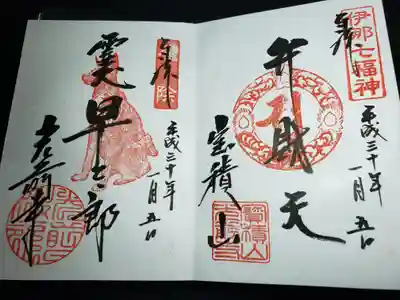 伊那七福神
奉拝
平成三十年
一月五日
弁財天
宝積山
奉拝
平成三十年
一月五日
霊犬
早太郎
光前寺